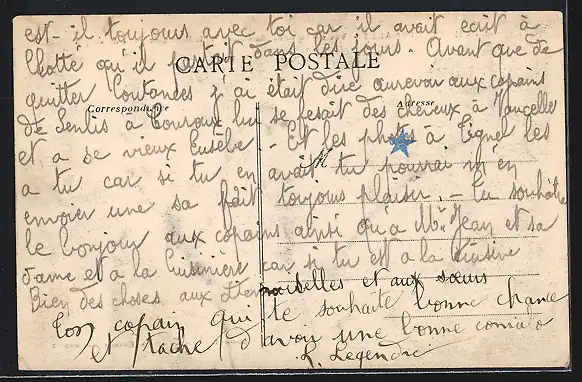 est-il toujours avec toi car il avait ecrit à
Chotté qu'il partait dans les jours. Avant que de
CARTE POSTALE
quitter Coutances j'ai était dire aurevoir aux copains
Correspondance Adresse
de Senlis à qui se fesait des cheveux à Vaucelles
et a se vieux Eusèbe - Et les photos à Tignel les
M
a tu car si tu en avait tu pourrai m'en
envoier une sa fait toujours plaisir. - Tu souhaite
le bonjour aux copains ainsi qu'a Mr Jean et sa
dame et a la cuisinière car si tu est a la cuisine
Bien des choses aux Demoiselles et aux sœurs
Ton copain qui te souhaite bonne chance
et tache d'avoir une bonne
Legendre